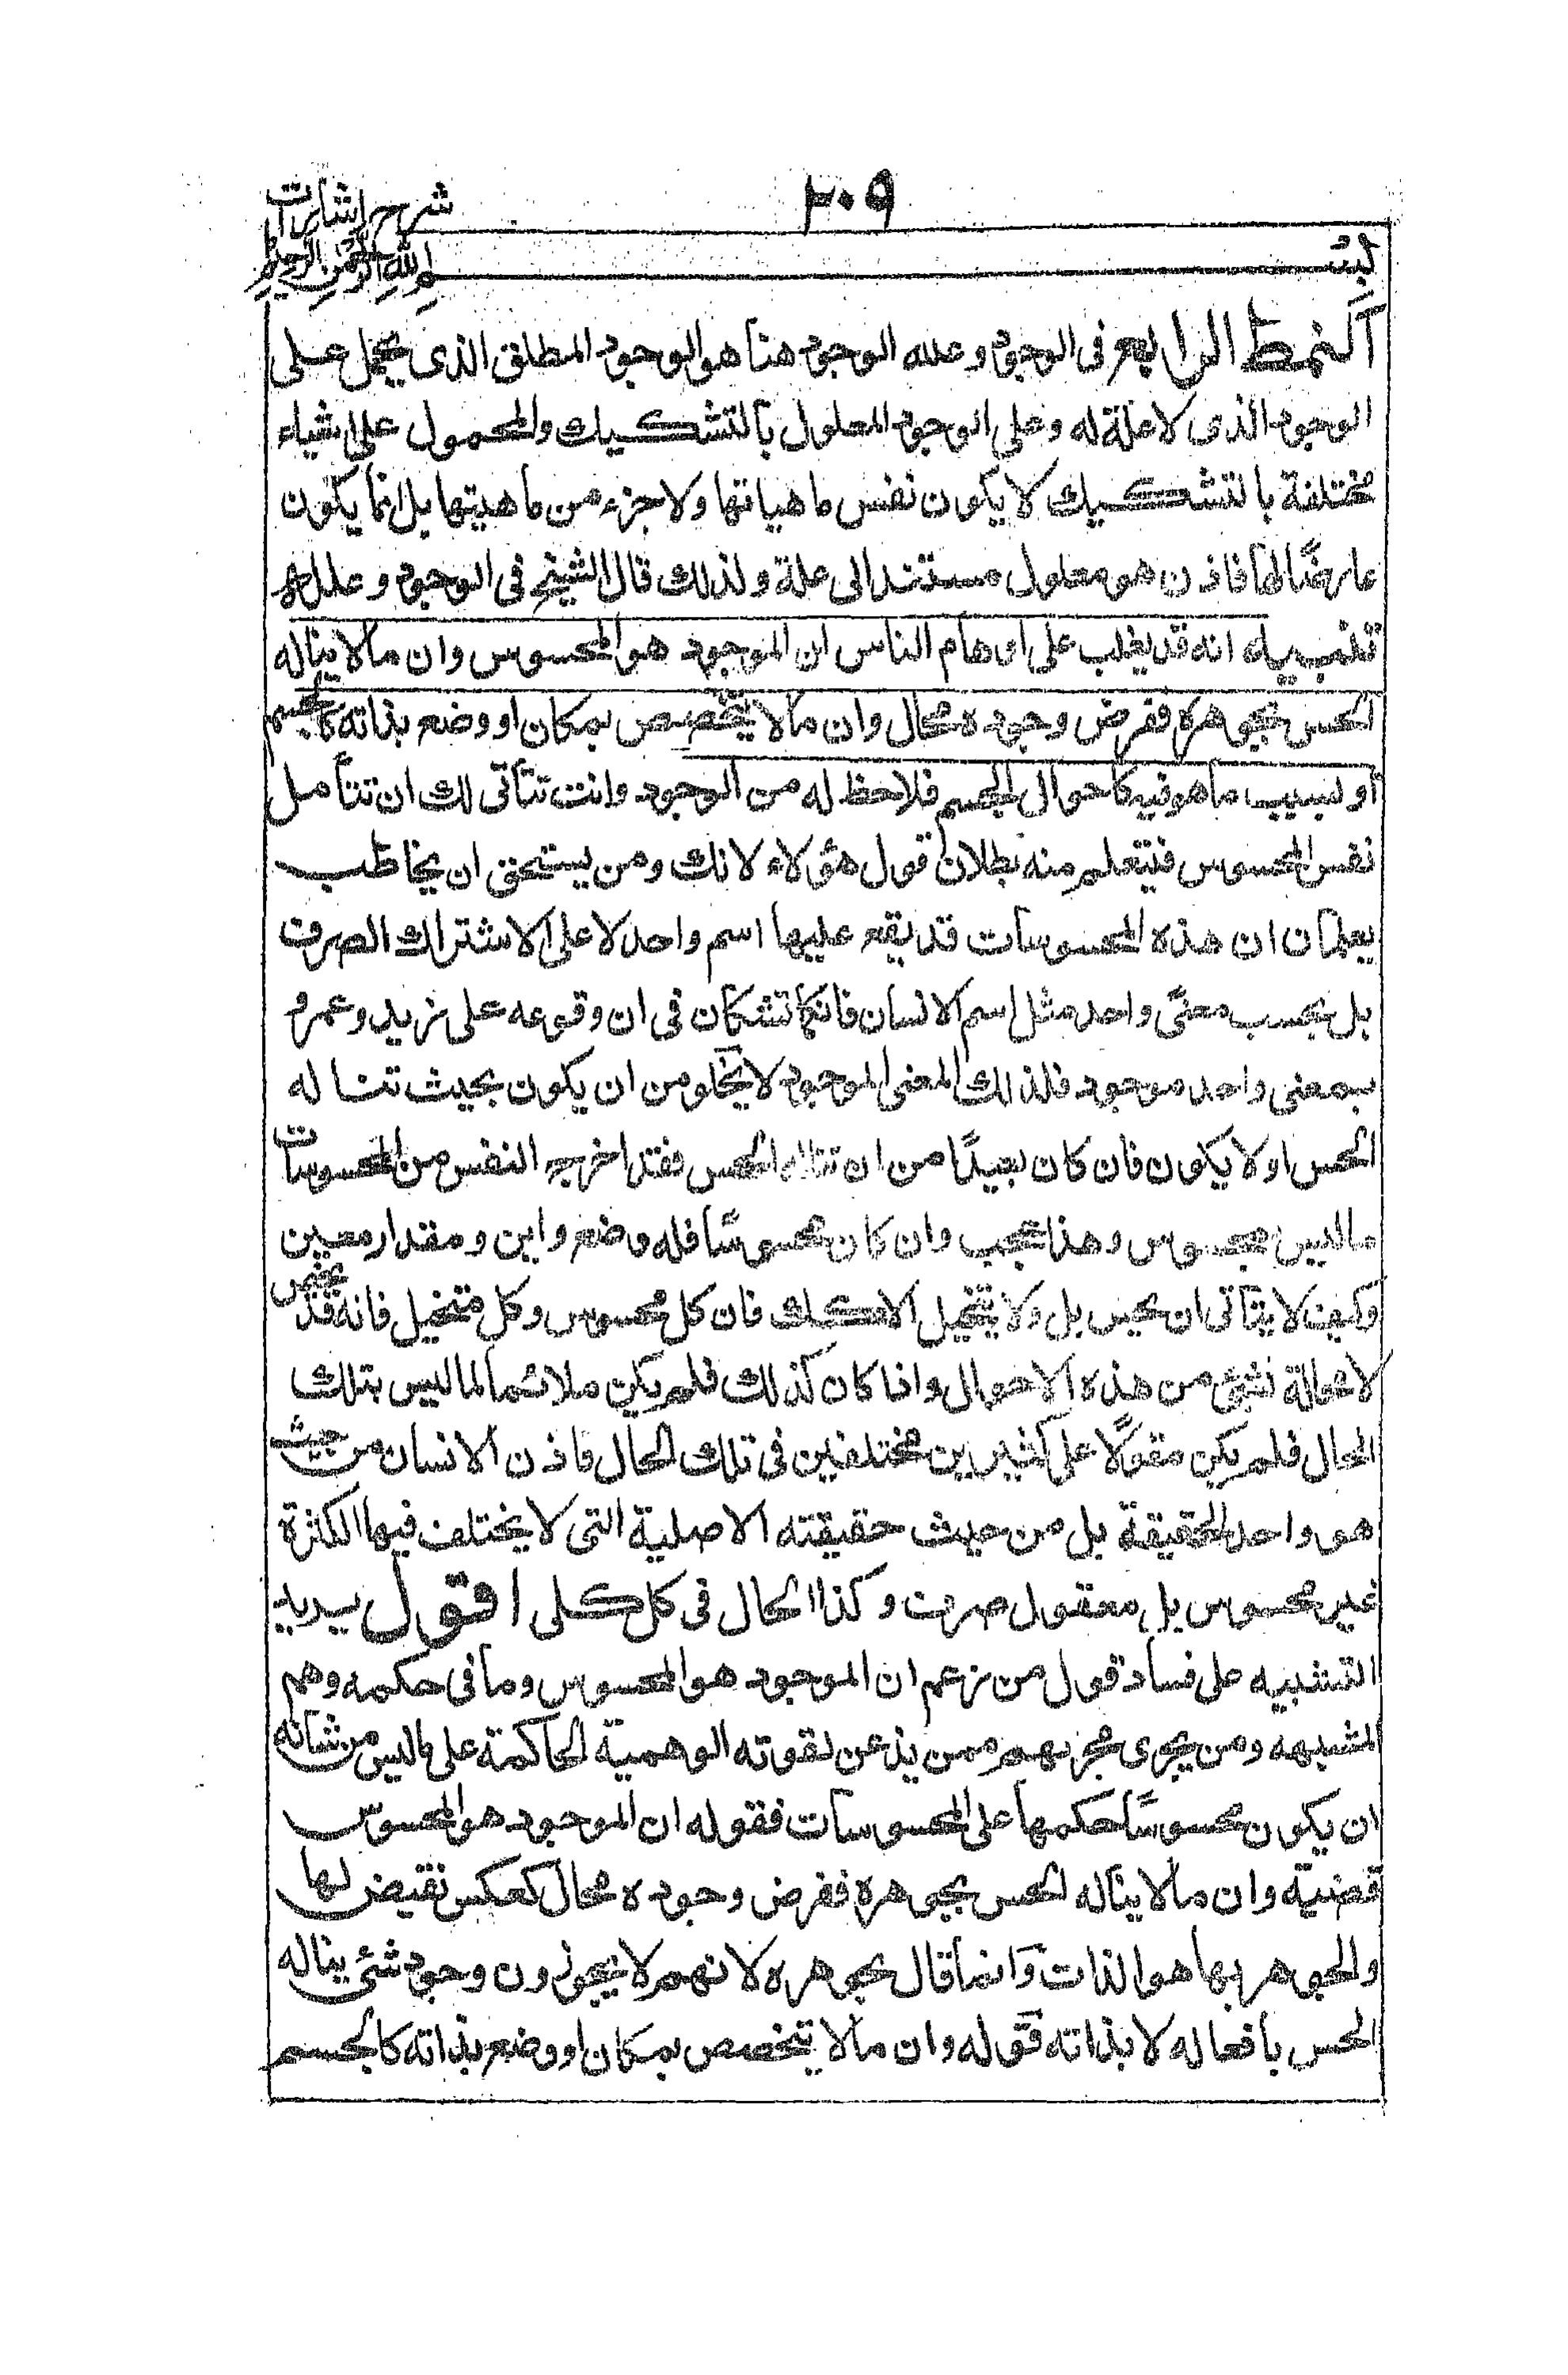 ٢٠٩
شرح اشارات
بسم الله الرحمن الرحيم
النمط الرابع فى الوجود وعلله الوجود هنا هو الوجود المطلق الذى يحمل على
الوجود الذى لا علة له وعلى الوجود المعلول بالتشكيك والمحمول على اشياء
مختلفة بالتشكيك لا يكون نفس ماهياتها ولا جزء من ماهيتها بل انما يكون
عارضًا لها فاذن هو معلول مستند الى علة ولذلك قال الشيخ فى الوجود وعلله
تنبيه انه قد يغلب على اوهام الناس ان الموجود هو المحسوس وان مالا يناله
الحس بجوهره ففرض وجوده محال وان مالا يتخصص بمكان او وضع بذاته كالجسم
او بسبب ما هو فيه كاحوال الجسم فلا حظ له من الوجود وانت تتأتى لك ان تتأمل
نفس المحسوس فيتعلم منه بطلان قول هؤلاء لانك ومن يستحق ان يخاطب
يعلمان ان هذه المحسوسات قد يقع عليها اسم واحد لا على الاشتراك الصرف
بل بحسب معنًى واحد مثل اسم الانسان فانكما تشكان فى ان وقوعه على زيد وعمرو
بمعنى واحد موجود فلذلك المعنى الموجود لا يخلو من ان يكون بحيث تناله
الحس او لا يكون فان كان بعيدًا من ان تناله الحس فقد اخرج النفس من المحسوسات
ماليس بمحسوس وهذا عجب وان كان محسوسًا فله وضع واين ومقدار معين
وكيف لا يتأتى ان يحس بل ولا يتخيل الا كذلك فان كل محسوس وكل متخيل فانه قد يخص
لا محالة بشئ من هذه الاحوال واذا كان كذلك فلم يكن ملائما لما ليس بتلك
الحال فلم يكن مقولًا على كثيرين مختلفين فى تلك الحال فاذن الانسان من حيث
هو واحد الحقيقة بل من حيث حقيقته الاصلية التى لا يختلف فيها الكثرة
غير محسوس بل معقول صرف وكذا الحال فى كل كلى اقول يريد
التنبيه على فساد قول من زعم ان الموجود هو المحسوس وما فى حكمه وهم
المشبهه ومن يجرى مجربهم ممن يذعن لقوته الوهمية الحاكمة على ماليس من شانه
ان يكون محسوسًا حكمها على المحسوسات فقوله ان الموجود هو المحسوس
قضية وان مالا يناله الحس بجوهره ففرض وجوده محال كعكس نقيض لها
والجوهر بها هو الذات وانما قال بجوهره لانهم لا يجوزون وجود شئ يناله
الحس بافعاله لا بذاته قوله وان مالا يتخصص بمكان او وضع بذاته كالجسم